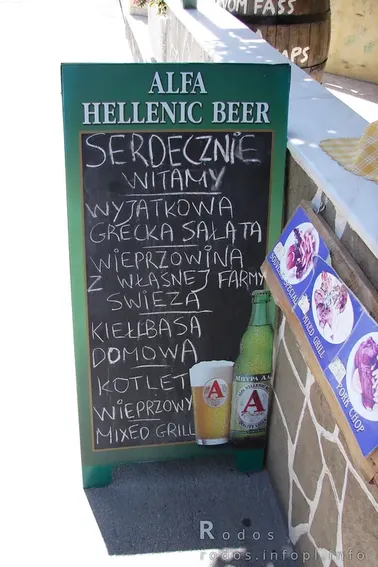 OM FASS
APS
ALFA
HELLENIC BEER
SERDECZNIE
WITAMY
WYJATKOWA
GRECKA SAŁATA
WIEPRZOWINA
Z WŁASNEJ FARMY
ŚWIEŻA
KIEŁBASA
DOMOWA
KOTLET
WIEPRZOWY
MIXED GRILL
ΜΠΥΡΑ ΑΛ
A
A
SPECIAL
MIXED GRILL
PORK CHOP
Rodos
rodos.infopl.info